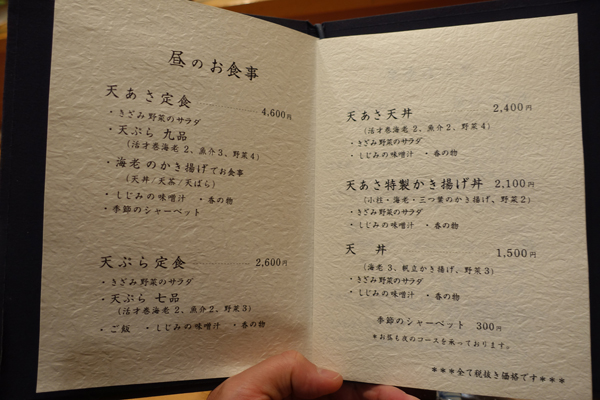 昼のお食事
天あさ定食 4,600円
・きざみ野菜のサラダ
・天ぷら 九品
(活才巻海老 2、魚介 3、野菜 4)
・海老のかき揚げでお食事
(天丼/天茶/天ばら)
・しじみの味噌汁 ・香の物
・季節のシャーベット
天ぷら定食 2,600円
・きざみ野菜のサラダ
・天ぷら 七品
(活才巻海老 2、魚介 2、野菜 3)
・ご飯 ・しじみの味噌汁 ・香の物
天あさ天丼 2,400円
(活才巻海老 2、魚介 2、野菜 4)
・きざみ野菜のサラダ
・しじみの味噌汁 ・香の物
天あさ特製かき揚げ丼 2,100円
(小柱・海老・三つ葉のかき揚げ、野菜 2)
・きざみ野菜のサラダ
・しじみの味噌汁 ・香の物
天丼 1,500円
(海老 3、帆立かき揚げ、野菜 3)
・きざみ野菜のサラダ
・しじみの味噌汁 ・香の物
季節のシャーベット 300円
*お昼も夜のコースを承っております。
***全て税抜き価格です***